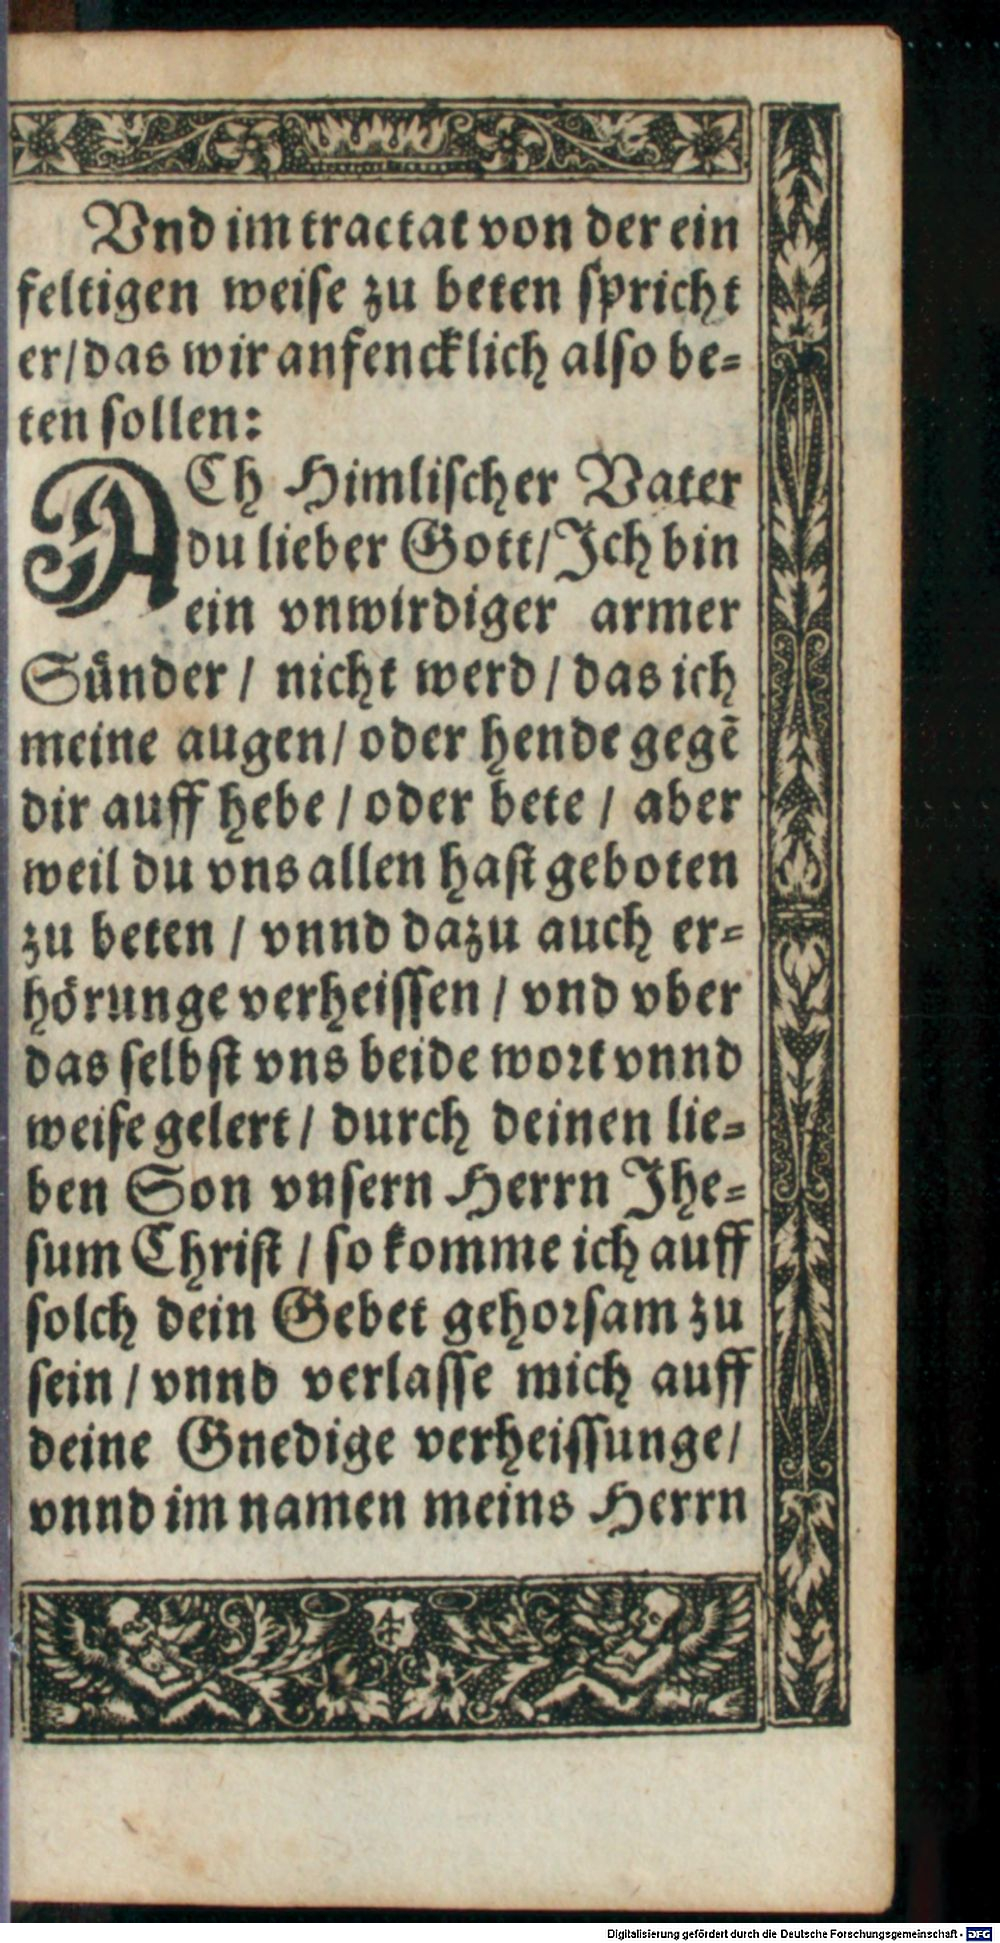 Vnd im tractat von der ein
feltigen weise zu beten spricht
er/das wir anfencklich also be=
ten sollen:
ACh Himlischer Vater
du lieber Gott/Jch bin
ein vnwirdiger armer
Sünder / nicht werd / das ich
meine augen/ oder hende gegē
dir auff hebe / oder bete / aber
weil du vns allen hast geboten
zu beten / vnnd dazu auch er=
hörunge verheissen / vnd vber
das selbst vns beide wort vnnd
weise gelert / durch deinen lie=
ben Son vnsern Herrn Jhe=
sum Christ / so komme ich auff
solch dein Gebet gehorsam zu
sein / vnnd verlasse mich auff
deine Gnedige verheissunge/
vnnd im namen meins Herrn
Digitalisierung gefördert durch die Deutsche Forschungsgemeinschaft - DFG